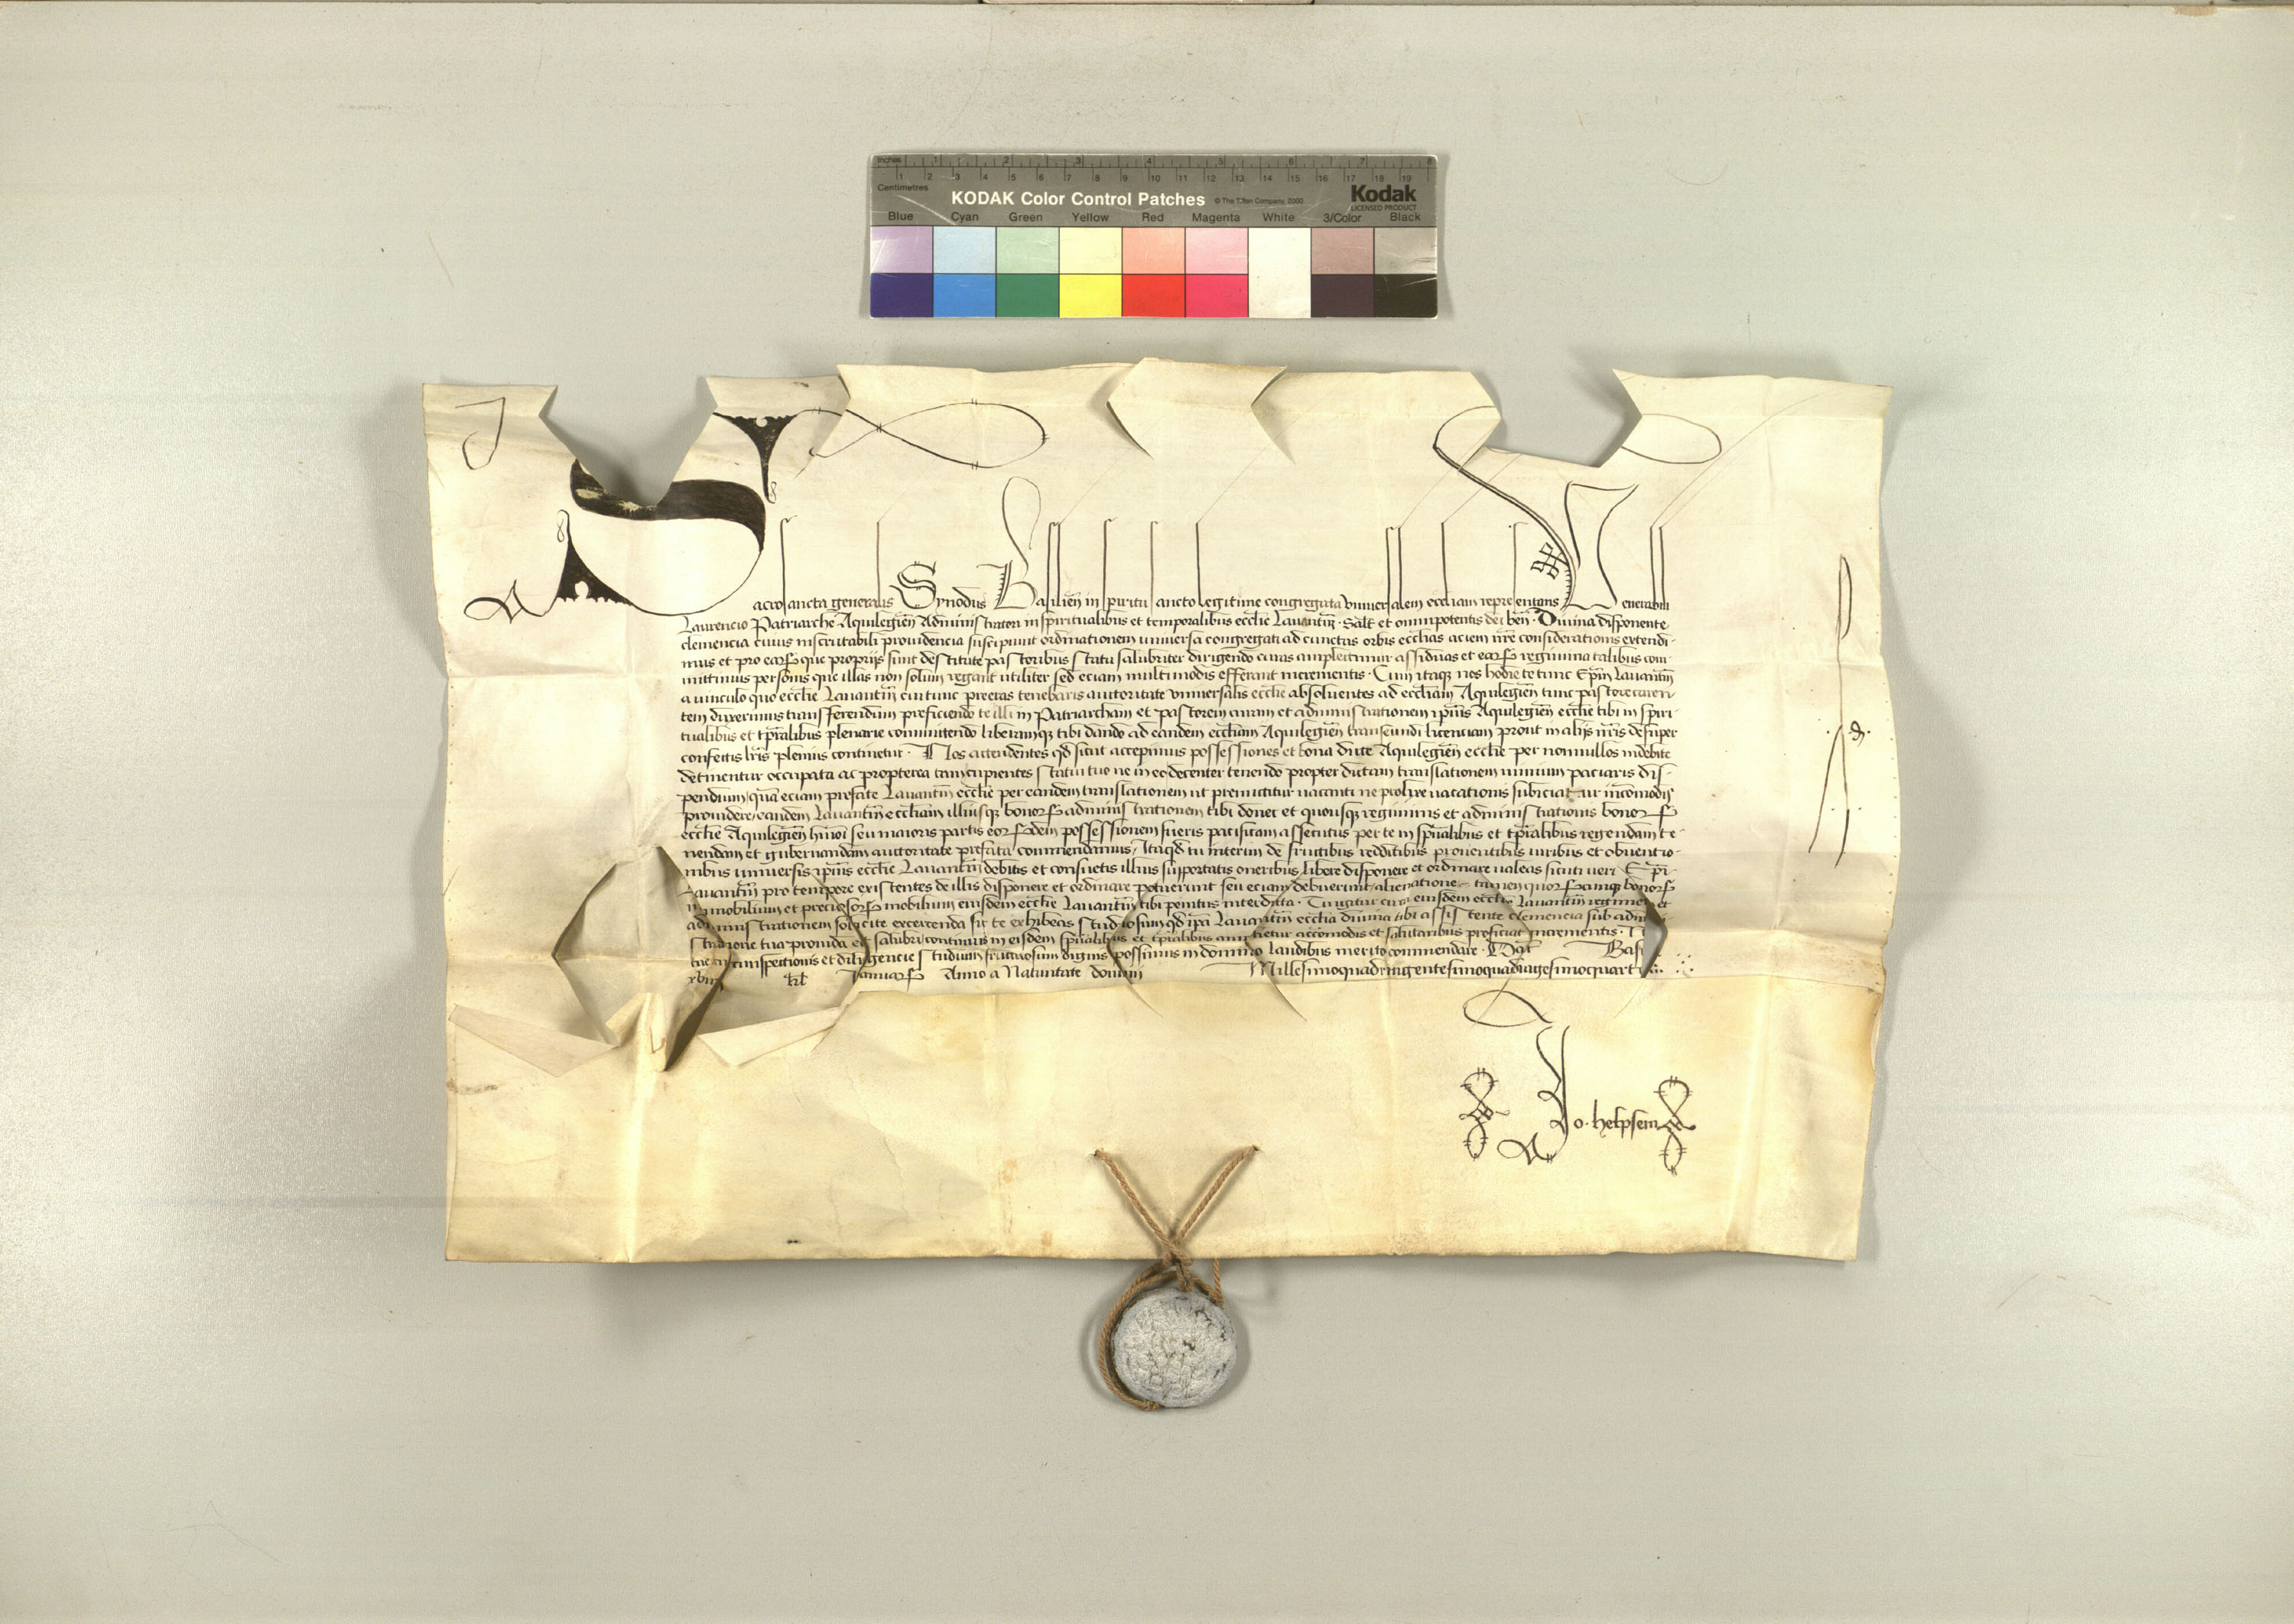 Inches 1 2 3 4 5 6 7 8
1 2 3 4 5 6 7 8 9 10 11 12 13 14 15 16 17 18 19
Centimetres
KODAK Color Control Patches © The Tiffen Company, 2000 Kodak
LICENSED PRODUCT
Blue Cyan Green Yellow Red Magenta White 3/Color Black
Sacrosancta generalis Synodus Basilien̄ in spiritu sancto legitime congregata vniuersalem eccl̄iam representans Venerabili
Laurencio Patriarche Aquilegien̄ Administratori in spiritualibus et temporalibus eccl̄ie Lauantin̄ · Salt̄ et omnipotentis dei ben̄ · Diuina disponente
clemencia cuius inscrutabili prouidencia suscipiunt ordinationem vniuersa congregati ad cunctas orbis eccl̄ias aciem nr̄e considerationis extendi-
mus et pro earꝝ que proprijs sunt destitute pastoribus statu salubriter dirigendo curas amplectimur assiduas et earꝝ regimina talibus com-
mittimus personis que illas non solum regant utiliter sed eciam multimodis efferant incrementis · Cum itaqꝫ nos hodie te tunc Ep̄m Lauantin̄
a vinculo quo eccl̄ie Lauantin̄ cui tunc preeras tenebaris auctoritate vniuersalis eccl̄ie absoluentes ad eccl̄iam Aquilegien̄ tunc pastore caren-
tem duxerimus transferendum preficiendo te illi in Patriarcham et pastorem curam et administrationem ip̄ius Aquilegien̄ eccl̄ie tibi in spiri-
tualibus et tp̄ralibus plenarie committendo liberamqꝫ tibi dando ad eandem eccl̄iam Aquilegien̄ transeundi licenciam prout in alijs nr̄is desuper
confectis lr̄is plenius continetur · Nos attendentes qd̄ sicut accepimus possessiones et bona dicte Aquilegien̄ eccl̄ie per nonnullos indebite
detinentur occupata ac propterea tam cupientes statui tuo ne in eo decenter tenendo propter dictam translationem nimium paciaris dis-
pendium, quā eciam prefate Lauantin̄ eccl̄ie per eandem translationem ut premittitur vacanti ne prolixe vacationis subiciatur incomodijs
prouidere, eandem Lauantin̄ eccl̄iam illiusqꝫ bonorꝝ administrationem tibi donec et quousqꝫ regiminis et administrationis bonorꝝ
eccl̄ie Aquilegien̄ hmōi seu maioris partis eorꝝdem possessionem fueris pacificam assecutus per te in sp̄ualibus et tp̄ralibus regendam te-
nendam et gubernandam auctoritate prefata commendamus, Itaqd̄ tu interim de fructibus redditibus prouentibus iuribus et obuentio-
nibus vniuersis ip̄ius eccl̄ie Lauantin̄ debitis et consuetis illius supportatis oneribus, libere disponere et ordinare valeas sicuti veri Ep̄i
Lauantin̄ pro tempore existentes de illis disponere et ordinare potuerunt seu eciam debuerunt, alienatione tamen quorꝝcunqꝫ bonorꝝ
immobilium et preciosorꝝ mobilium eiusdem eccl̄ie Lauantin̄ tibi penitus interdicta · Tu igitur circa eiusdem eccl̄ie Lauantin̄ regimen et
administrationem solicite excercenda sic te exhibeas studiosum qd̄ ip̄a Lauantin̄ eccl̄ia diuina tibi assistente clemencia sub admi
stratione tua prouida et salubri continuis in eisdem sp̄ualibus et tp̄ralibus accomodis et salutaribus proficiat incrementis ·
tue circumspectionis et diligencie studium fructuosum dignis possimus in domino laudibus merito commendare · Dat̄ Basi
xviij kl̄ Januarꝝ Anno a Natiuitate domini Millesimoquadringentesimoquadragesimoquarto
d.
Jo. helpsem